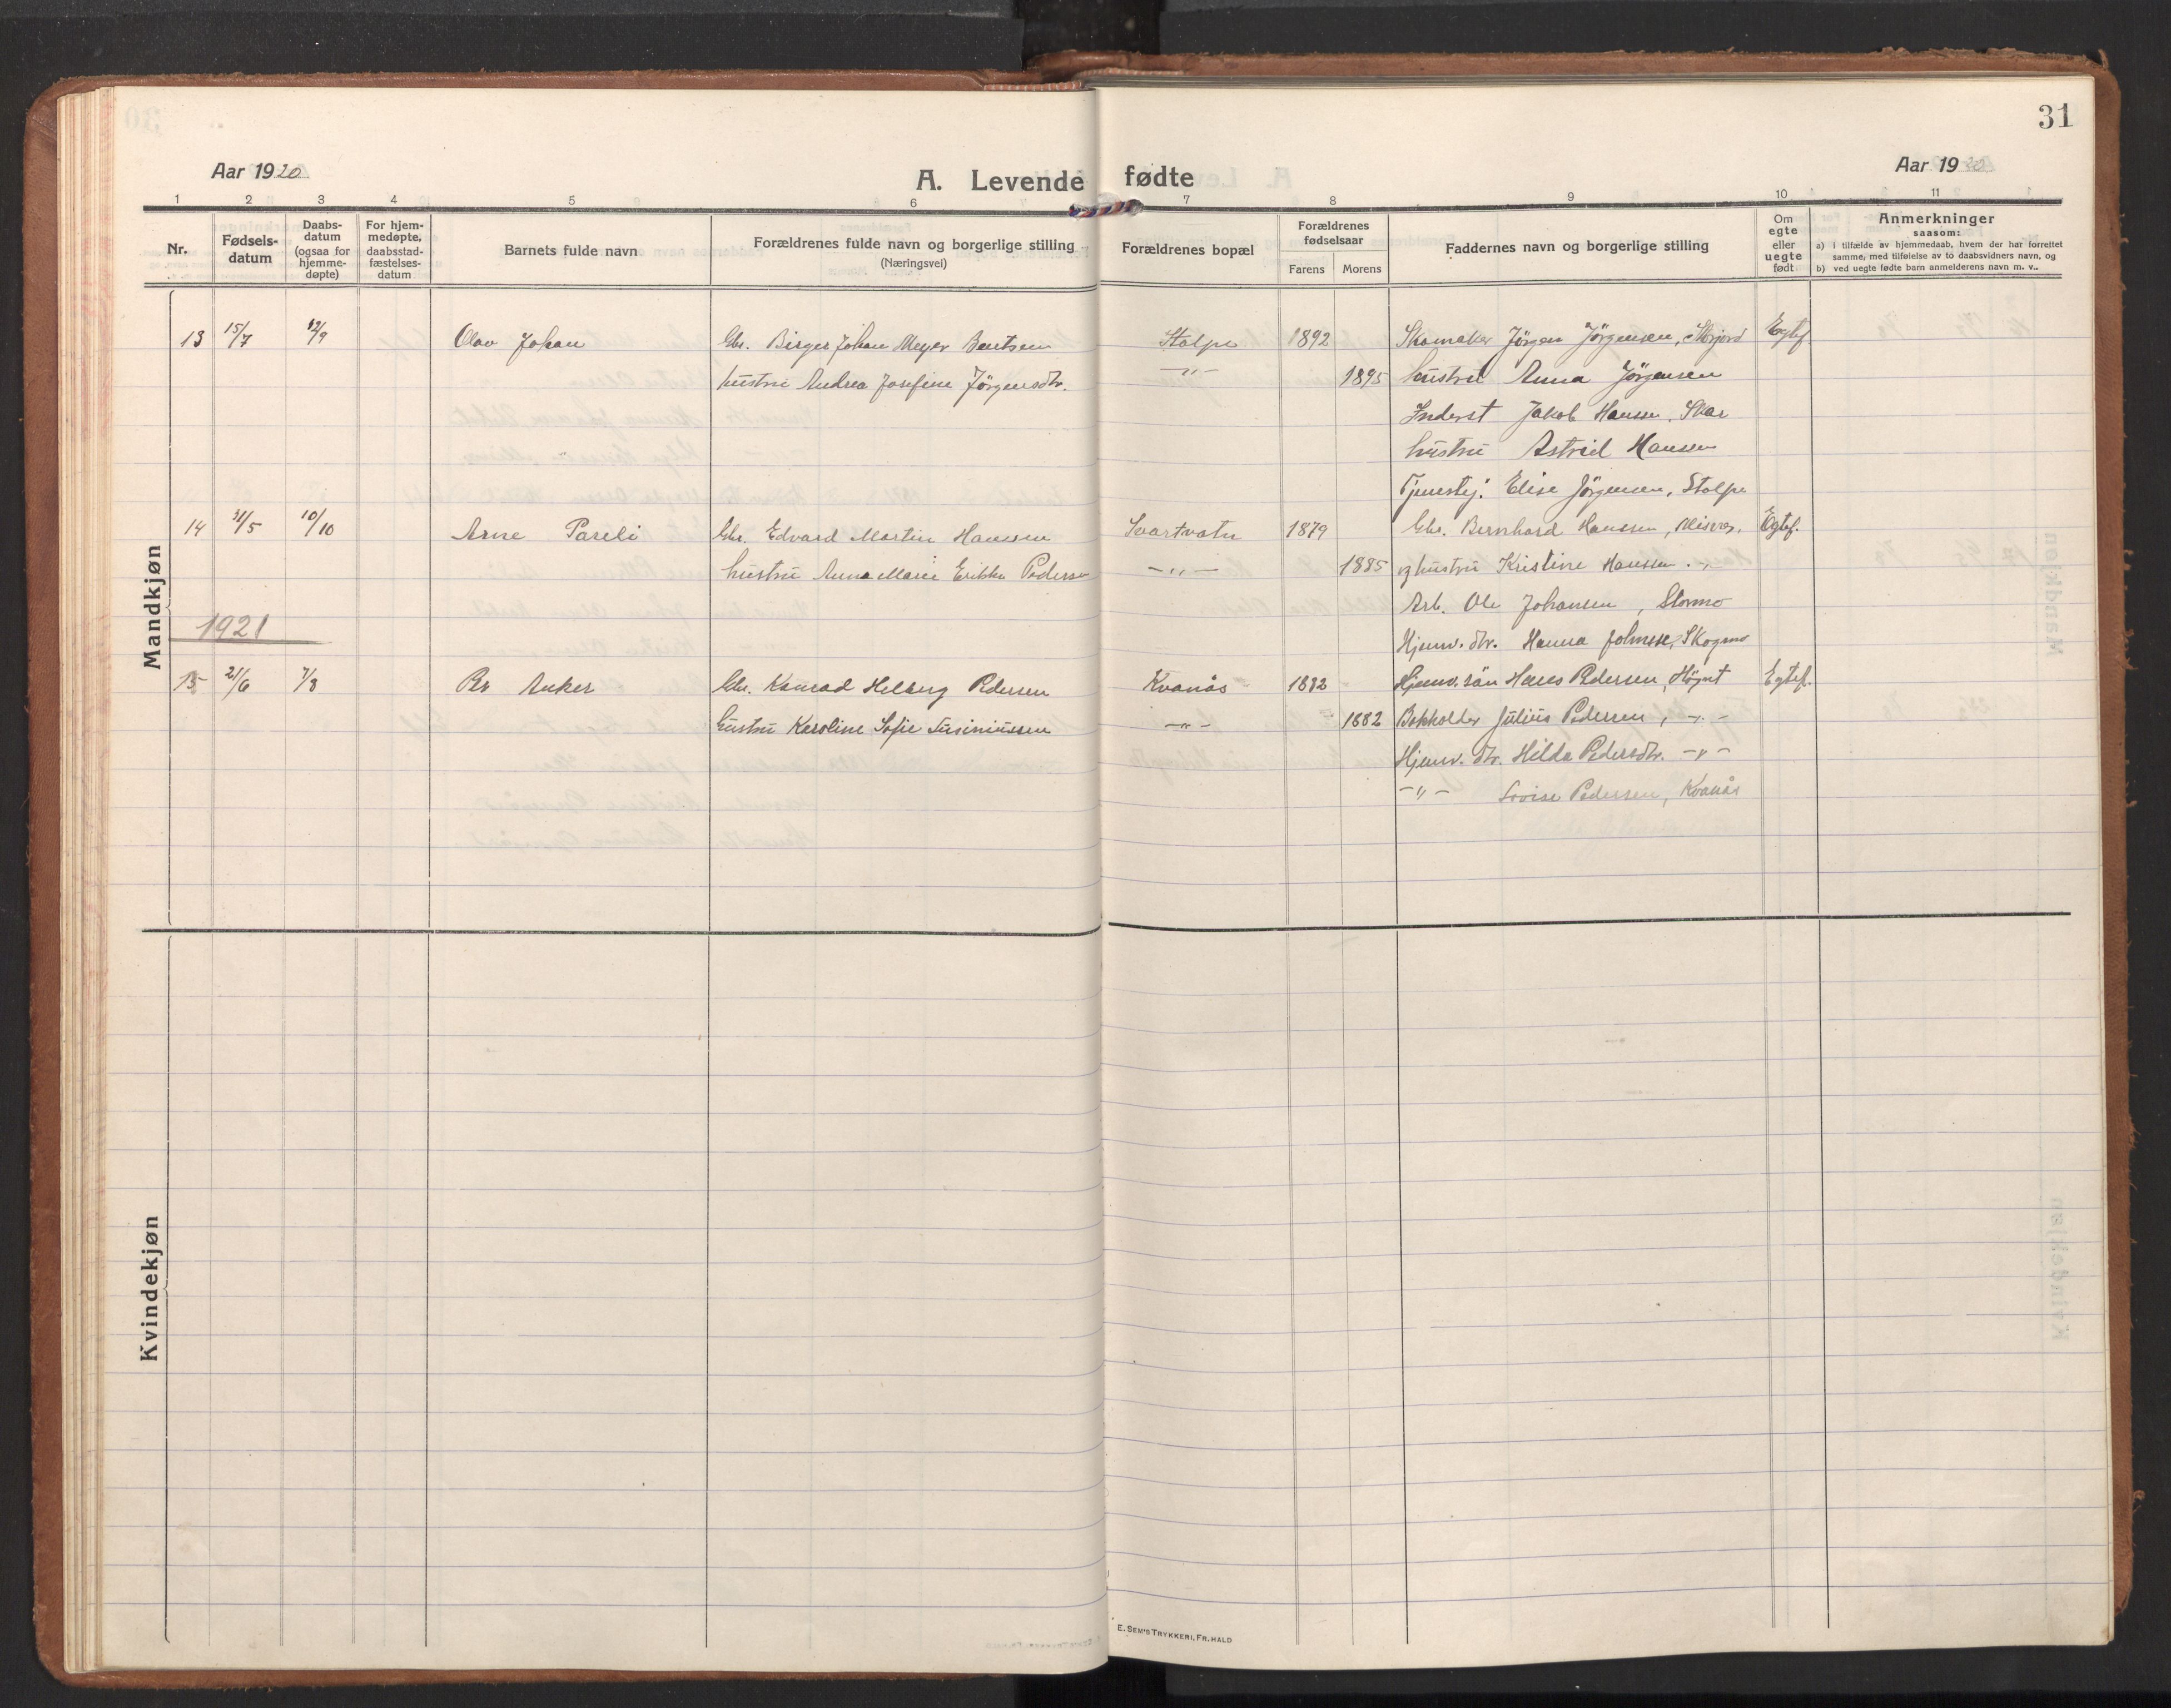 31
Aar 1920
A. Levende fødte
Aar 1920
1 2 3 4 5 6 7 8 9 10 11
Nr.
Fødsels-
datum
Daabs-
datum
(ogsaa for
hjemme-
døpte)
For hjem-
medøpte,
daabsstad-
fæstelses-
datum
Barnets fulde navn
Forældrenes fulde navn og borgerlige stilling
(Næringsvei)
Forældrenes bopæl
Forældrenes
fødselsaar
Farens Morens
Faddernes navn og borgerlige stilling
Om
egte
eller
uegte
født
Anmerkninger
saasom:
a) i tilfælde av hjemmedaab, hvem der har forrettet
samme, med tilføielse av to daabsvidners navn, og
b) ved uegte fødte barn anmelderens navn m. v..
Mandkjøn
13 15/7 12/9 Olav Johan Gbr. Birger Johan Meyer Bentsen Stolpe 1892 Skomaker Jörgen Jörgensen, Storjord Egtef.
hustru Andrea Josefine Jörgensdtr. -"- 1895 hustru Anna Jörgensen
Inderst Jakob Hansen, Skar
hustru Astrid Hansen
Tjenestej. Elise Jörgensen, Stolpe
14 31/5 10/10 Arne Pareli Gbr. Edvard Martin Hanssen Svartvatn 1879 Gbr. Bernhard Hanssen, Misvær. Egtef.
hustru Anna Marie Erikka Pederse -"- 1885 og hustru Kristine Hanssen -"-
Arb. Ole Johansen, Stormo
Hjemv. dtr. Hanna Johnsen, Skogmo
1921
15 21/6 7/8 Per Anker Gbr. Konrad Helberg Pedersen Kvanås 1882 Hjemv. sön Hans Pedersen, Högset Egtef.
hustru Karoline Sofie Tusiniussen -"- 1882 Bokholder Julius Pedersen, -"-
Hjemv. dtr. Hilda Pedersdtr. -"-
-"- Lovise Pedersen, Kvanås
Kvindekjøn
E. SEM'S TRYKKERI, FR.HALD